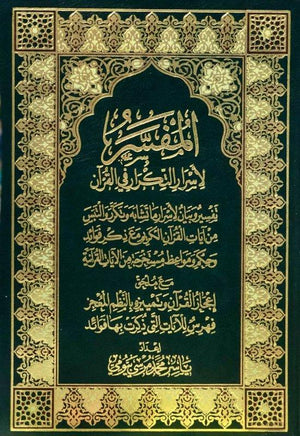 المفسر
لأسرار التكرار في القرآن
تفسير وبيان لأسرار ما تشابه وتكرر والتبس
من آيات القرآن الكريم مع ذكر فوائد
وحكم ومواعظ مستخرجة من الآيات القرآنية
مع ملحق
إعجاز القرآن وتميزه بالنظم المعجز
فهرس للآيات التي ذكرت بها فوائد
إعداد
ياسر محمد مرسي بيومي